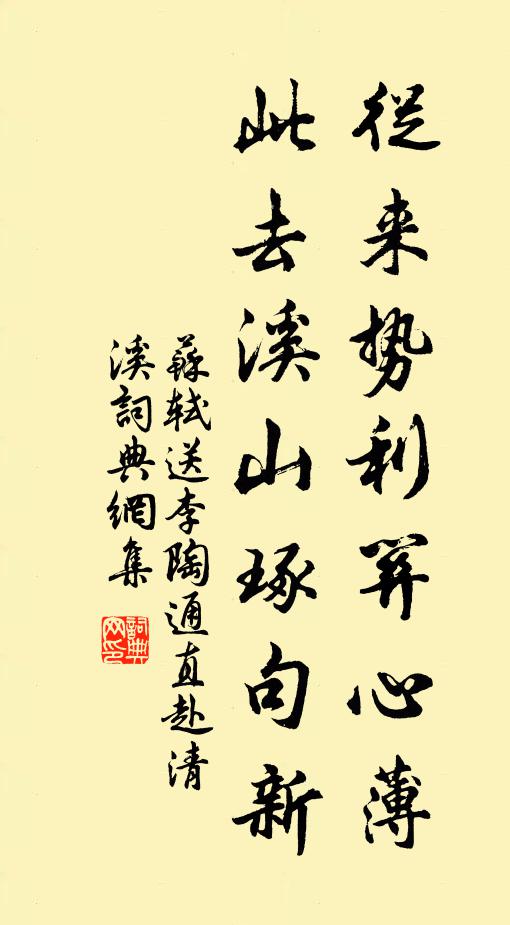 從来势利関心薄
此去溪山琢句新
蘇軾送李陶通直赴清
溪詞典網集
詞典
网印